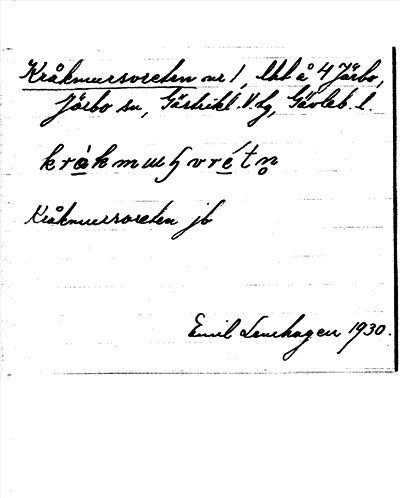 Kråkmursvreten nr 1, lht å 4 Järbo,
Järbo sn, Gästrikl. V. hg, Gävleb. l.
kråkmuʂvrétn̥
Kråkmursvreten jb
Emil Lenhagen 1930.